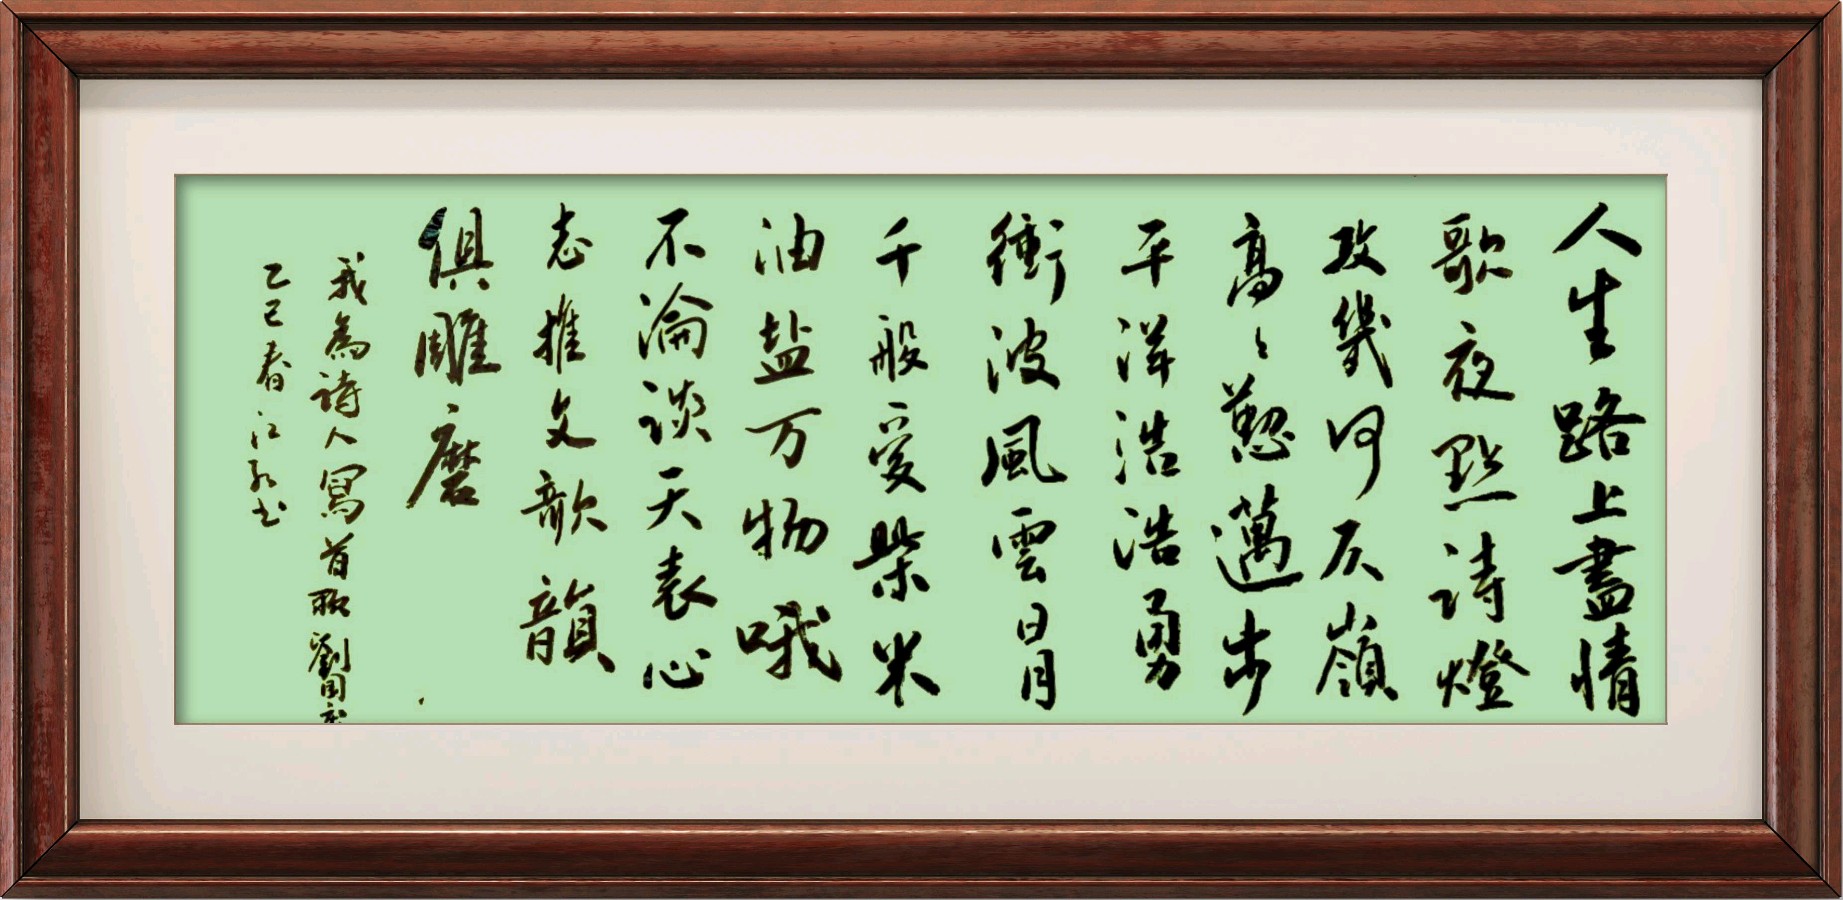 人生路上盡情
歌夜點詩燈
攻幾何仄嶺
高〻懃邁步
平洋浩浩勇
衝波風雲日月
千般愛柴米
油盐万物哦
不淪談天表心
志推文歆韻
俱雕磨
我為詩人寫首歌劉國
乙巳春江书